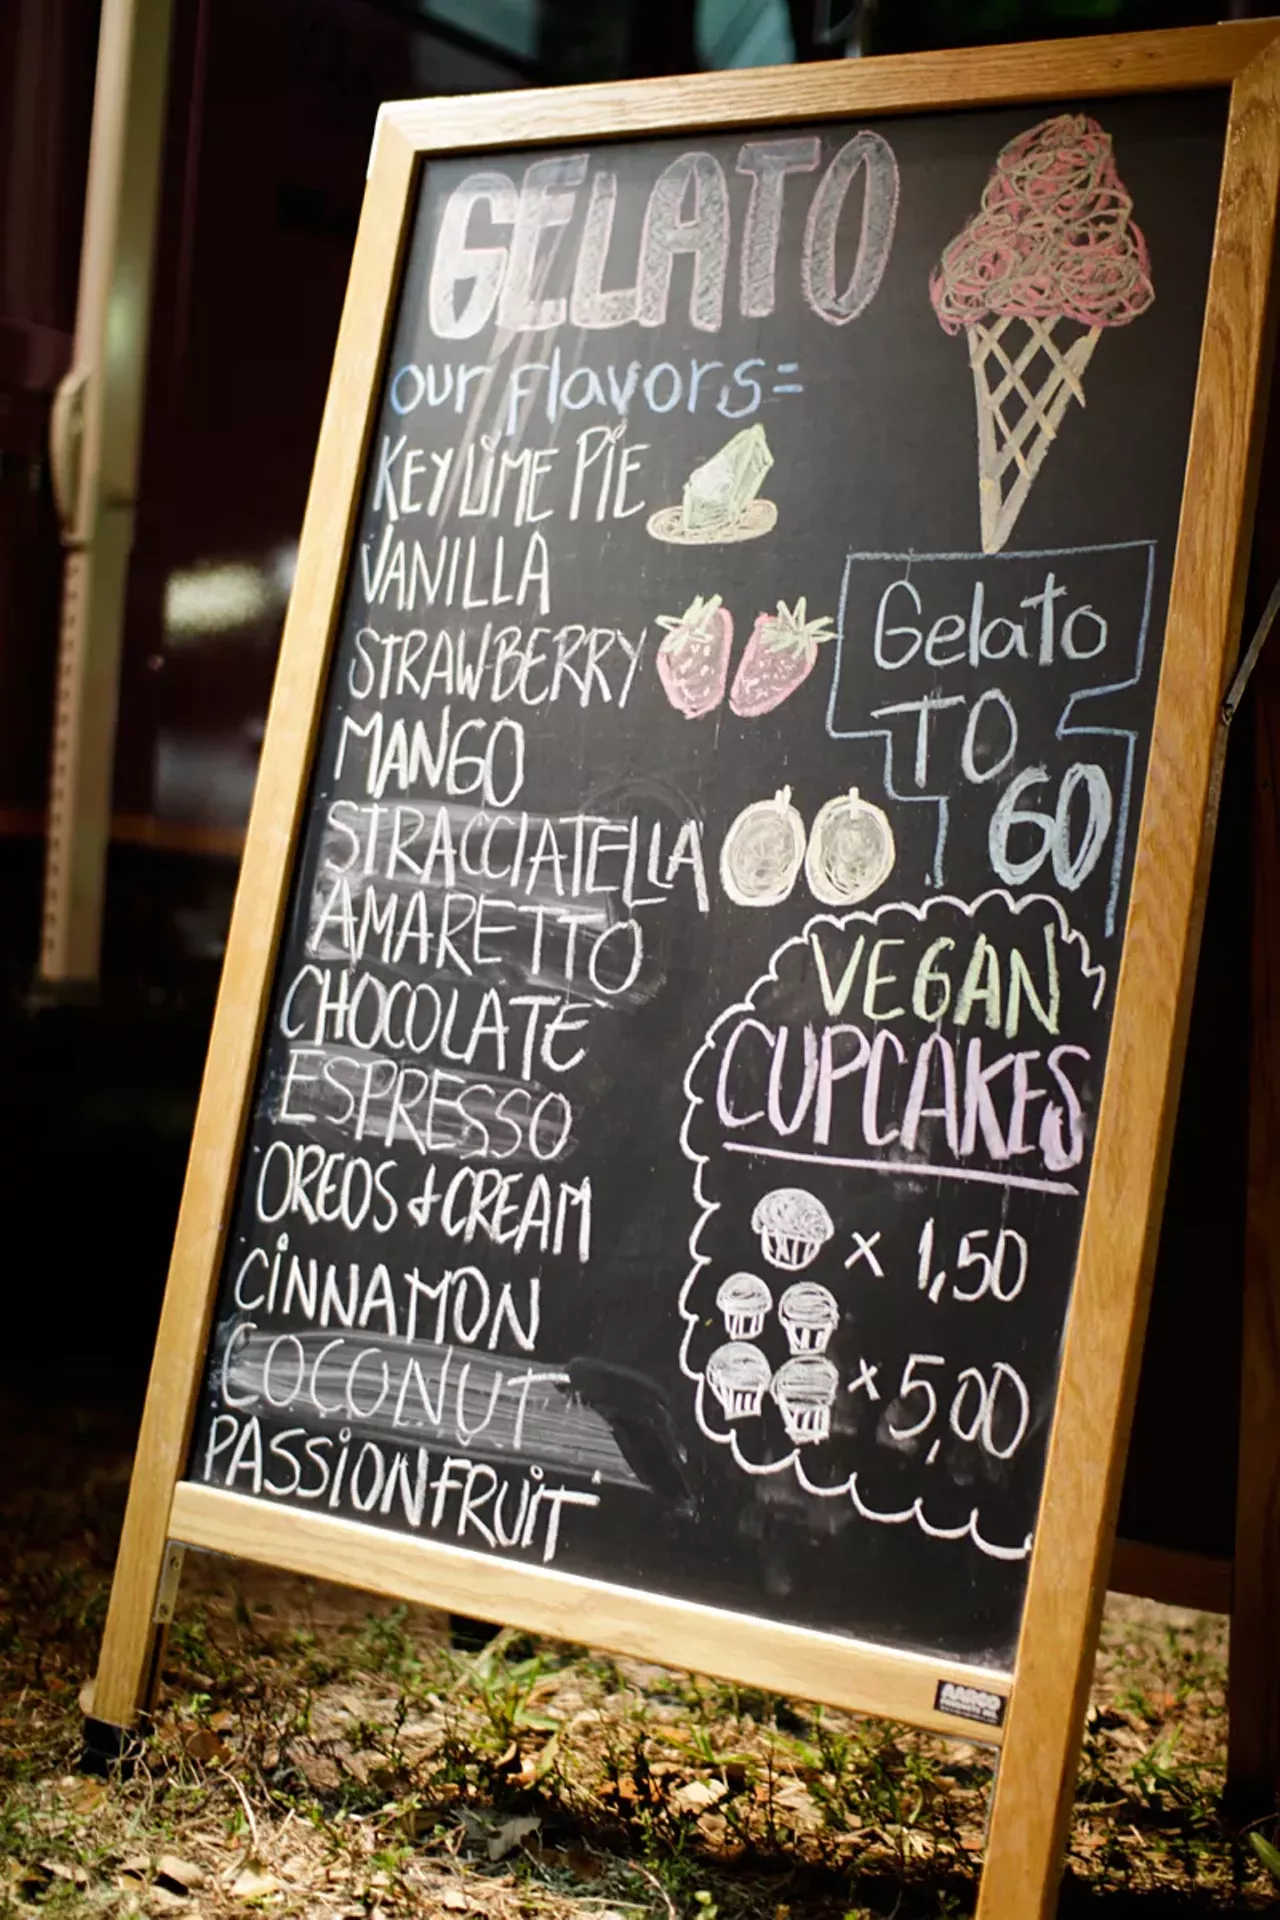 GELATO
our flavors=
KEY LIME PIE
VANILLA
STRAWBERRY
MANGO
STRACCIATELLA
AMARETTO
CHOCOLATE
ESPRESSO
OREOS + CREAM
CINNAMON
COCONUT
PASSIONFRUIT
Gelato
TO
GO
VEGAN
CUPCAKES
x 1,50
x 5,00
AARCO